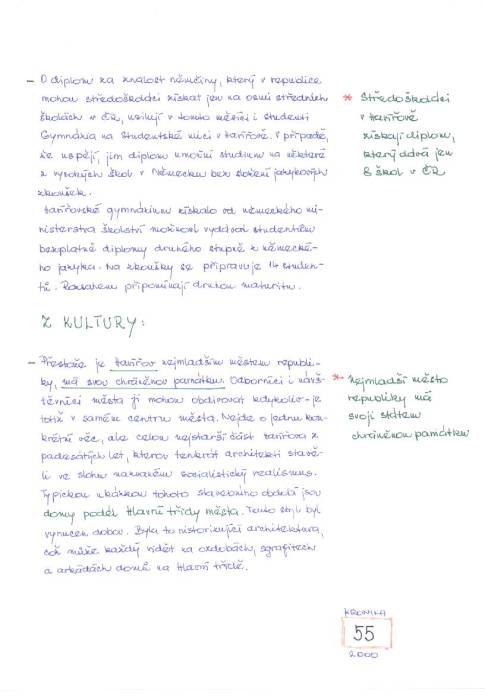 - O diplom za znalost němčiny, který v republice
mohou středoškoláci získat jen na osmi středních
školách v ČR, usilují v tomto měsíci i studenti
Gymnázia na Studentské ulici v Havířově. V případě,
že uspějí, jim diplom umožní studium na některé
z vysokých škol v Německu bez složení jazykových
zkoušek.
Havířovské gymnázium získalo od německého mi-
nisterstva školství možnost vydávat studentům
bezplatně diplomy druhého stupně z německé-
ho jazyka. Na zkoušky se připravuje 14 studen-
tů. Rozsahem připomínají druhou maturitu.
* Středoškoláci
v Havířově
získají diplom,
který dává jen
8 škol v ČR
Z KULTURY:
- Přestože je Havířov nejmladším městem republi-
ky, má svou chráněnou památku. Odborníci i návš-
těvníci města ji mohou obdivovat kdykoliv - je
totiž v samém centru města. Nejde o jednu kon-
krétní věc, ale celou nejstarší část Havířova z
padesátých let, kterou tenkrát architekti stavě-
li ve slohu nazvaném socialistický realismus.
Typickou ukázkou tohoto stavebního období jsou
domy podél Hlavní třídy města. Tento styl byl
vynucen dobou. Byla to historizující architektura,
což může každý vidět na ozdobách, sgrafitech
a arkádách domů na Hlavní třídě.
* Nejmladší město
republiky má
svoji státem
chráněnou památku
KRONIKA
55
2000